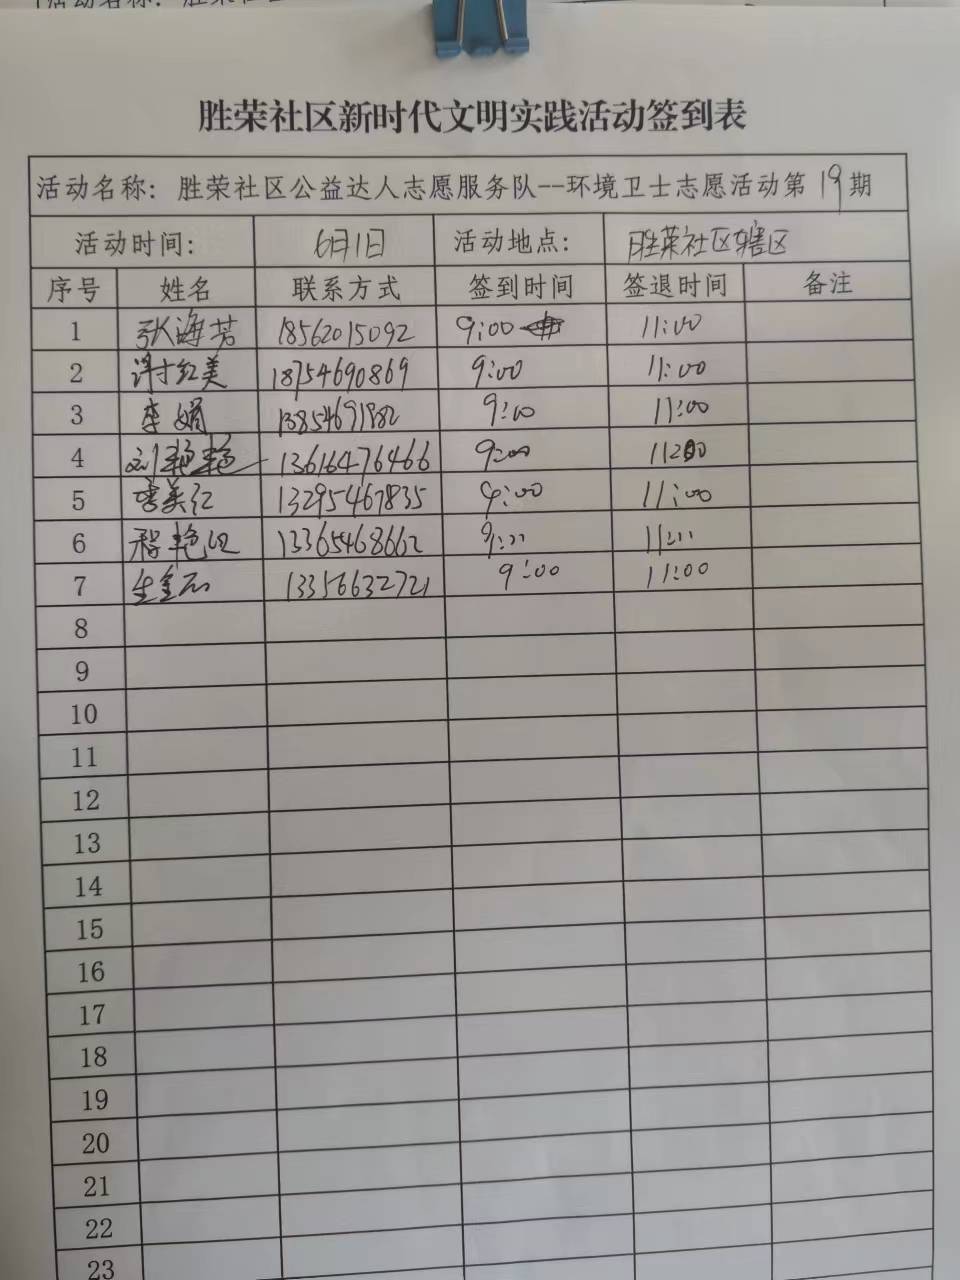 胜荣社区新时代文明实践活动签到表
活动名称：胜荣社区公益达人志愿服务队--环境卫士志愿活动第19期
活动时间： 6月1日 活动地点： 胜荣社区辖区
序号 姓名 联系方式 签到时间 签退时间 备注
1 张海芳 18562015092 9:00 11:00
2 谢红美 18754690869 9:00 11:00
3 李娟 13854691982 9:00 11:00
4 刘艳艳 13616476466 9:00 11:00
5 李美红 13295467835 9:00 11:00
6 程艳 13365468662 9:00 11:00
7 13356632721 9:00 11:00
8
9
10
11
12
13
14
15
16
17
18
19
20
21
22
23